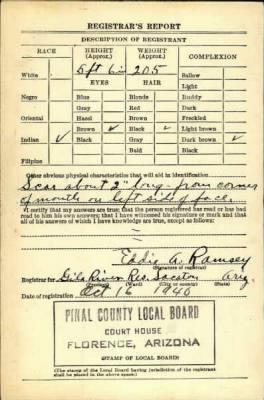 REGISTRAR'S REPORT
DESCRIPTION OF REGISTRANT
RACE HEIGHT (Approx.) WEIGHT (Approx.) COMPLEXION
White 5 ft 6 in 205 Sallow
EYES HAIR Light
Negro Blue Blonde Ruddy
Gray Red Dark
Oriental Hazel Brown Freckled
Brown ✓ Black ✓ Light brown
Indian ✓ Black Gray Dark brown ✓
Bald Black
Filipino
Other obvious physical characteristics that will aid in identification
Scar about 2" long - from corner
of mouth on left side of face.
I certify that my answers are true; that the person registered has read or has had
read to him his own answers; that I have witnessed his signature or mark and that
all of his answers of which I have knowledge are true, except as follows:
Eddie A. Ramsey
(Signature of registrar)
Registrar for Gila River Res. Sacaton Ariz
(Precinct) (Ward) (City or county) (State)
Date of registration Oct 16 1940
PINAL COUNTY LOCAL BOARD
COURT HOUSE
FLORENCE, ARIZONA
(STAMP OF LOCAL BOARD)
(The stamp of the Local Board having jurisdiction of the registrant
shall be placed in the above space.)